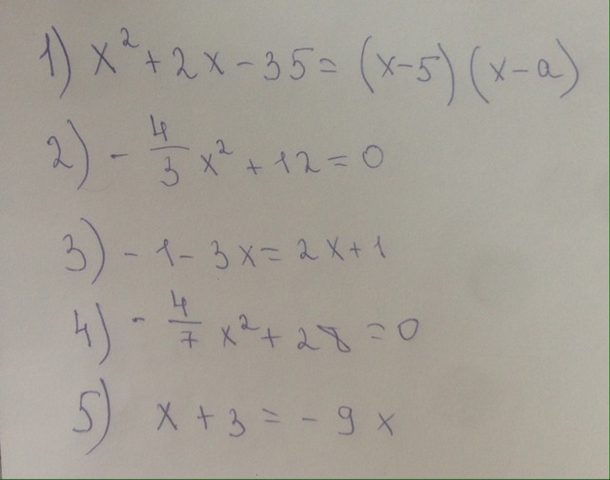 1) x² + 2x - 35 = (x-5)(x-a)
2) - 4/3 x² + 12 = 0
3) - 1 - 3x = 2x + 1
4) - 4/7 x² + 28 = 0
5) x + 3 = - 9x